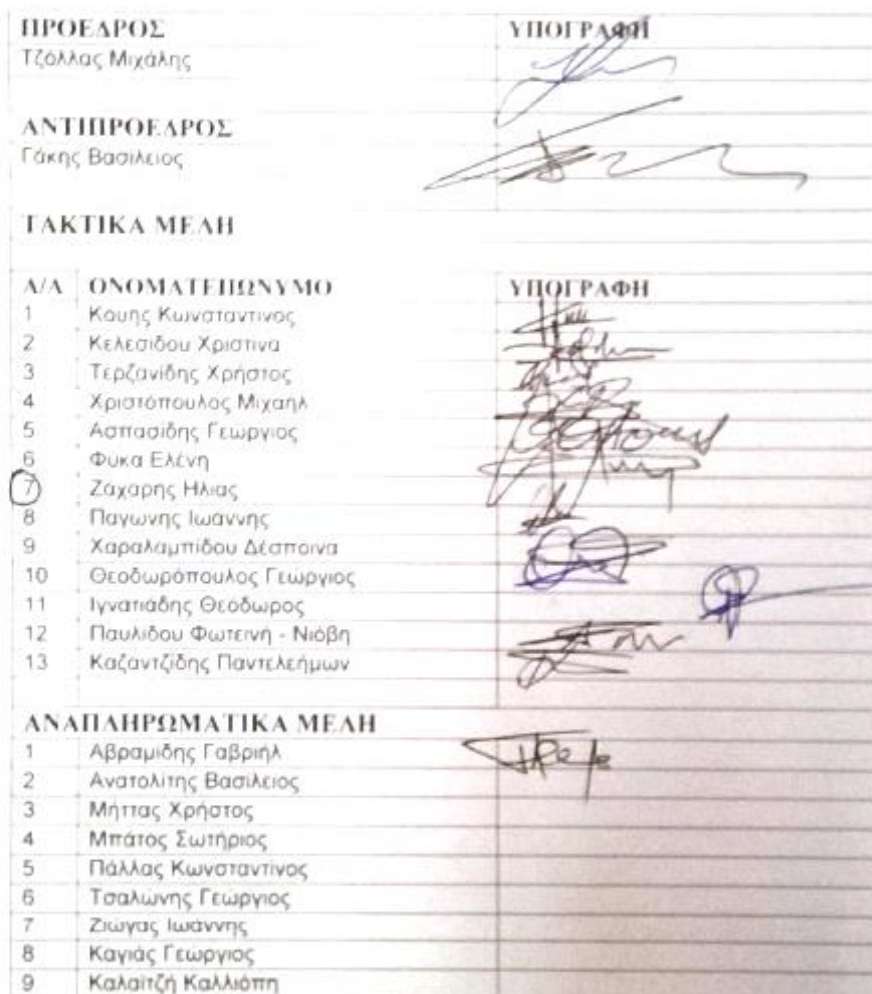 ΠΡΟΕΔΡΟΣ ΥΠΟΓΡΑΦΗ
Τζόλλας Μιχάλης
ΑΝΤΙΠΡΟΕΔΡΟΣ
Γάκης Βασίλειος
ΤΑΚΤΙΚΑ ΜΕΛΗ
Α/Α ΟΝΟΜΑΤΕΠΩΝΥΜΟ ΥΠΟΓΡΑΦΗ
1 Κουης Κωνσταντινος
2 Κελεσίδου Χριστίνα
3 Τερζανίδης Χρήστος
4 Χριστόπουλος Μιχαήλ
5 Ασπασίδης Γεωργιος
6 Φυκα Ελένη
7 Ζαχαρης Ηλιας
8 Παγωνης Ιωάννης
9 Χαραλαμπίδου Δέσποινα
10 Θεοδωρόπουλος Γεώργιος
11 Ιγνατιάδης Θεόδωρος
12 Παυλίδου Φωτεινή - Νιόβη
13 Καζαντζίδης Παντελεήμων
ΑΝΑΠΛΗΡΩΜΑΤΙΚΑ ΜΕΛΗ
1 Αβραμιδης Γαβριήλ
2 Ανατολίτης Βασίλειος
3 Μήττας Χρήστος
4 Μπάτος Σωτήριος
5 Πάλλας Κωνσταντίνος
6 Τσαλώνης Γεώργιος
7 Ζιώγας Ιωάννης
8 Καγιάς Γεωργιος
9 Καλαϊτζή Καλλιόπη